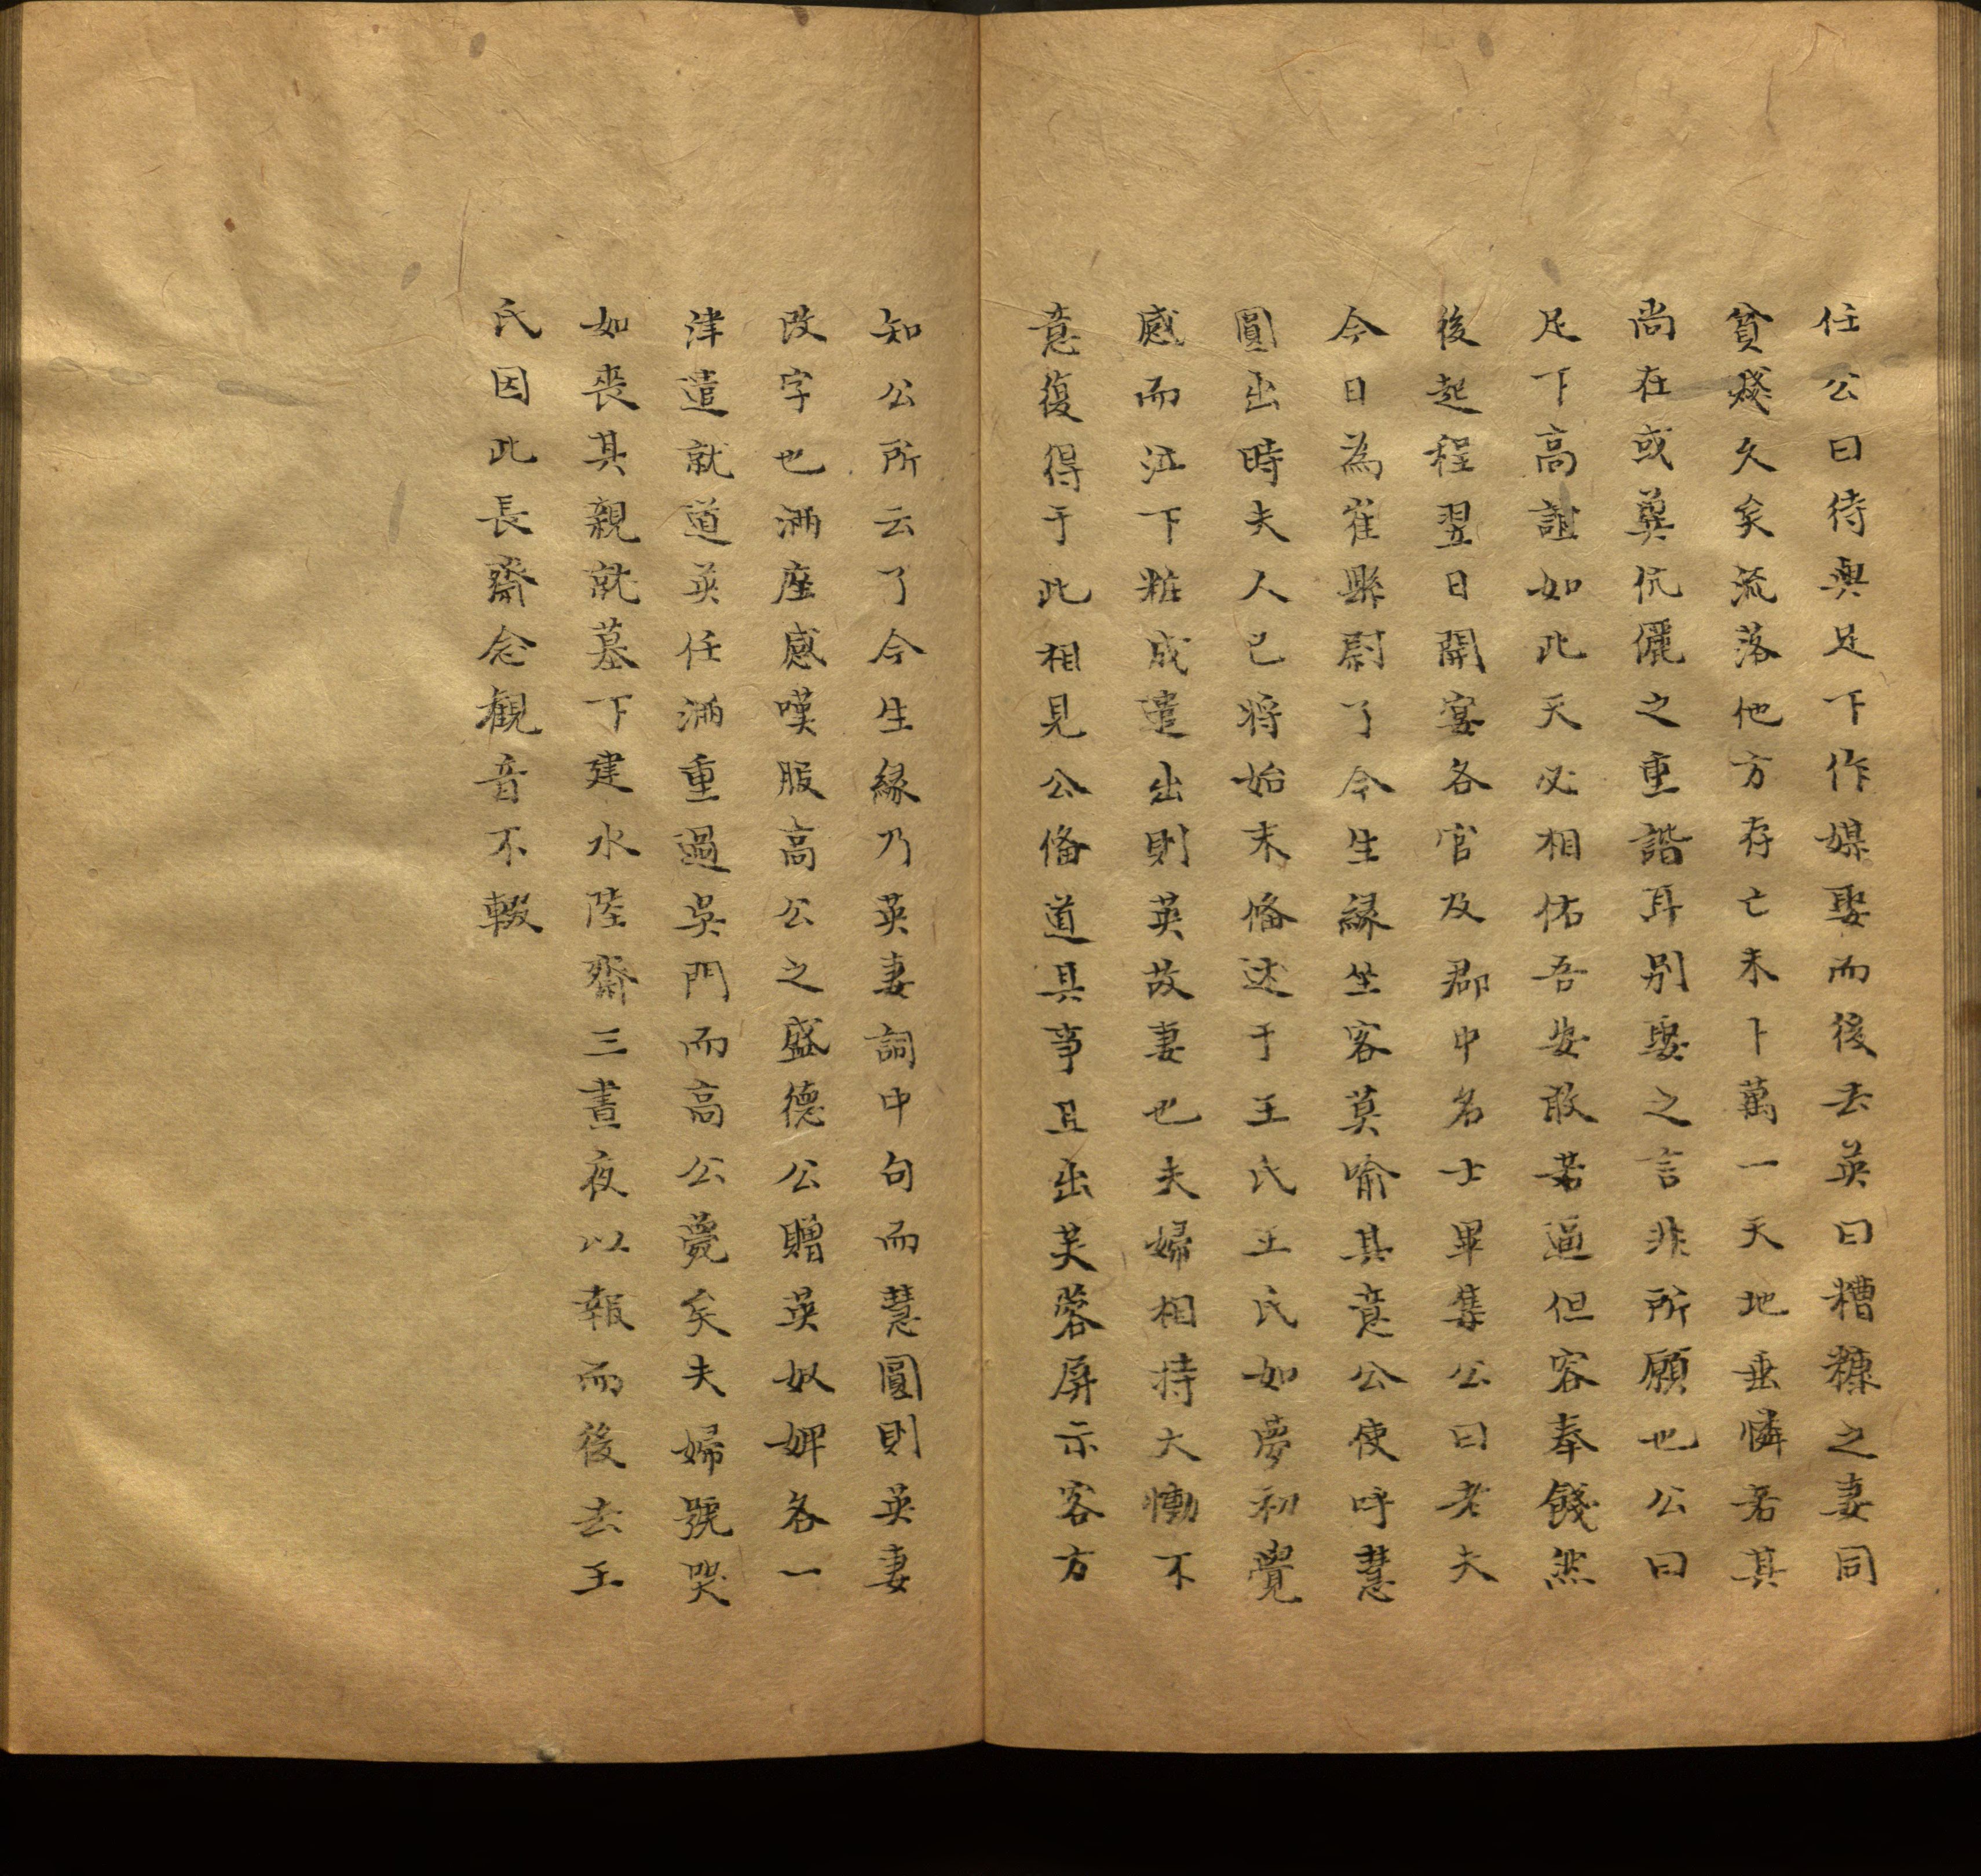 任公曰待與足下作媒娶而後去英曰糟糠之妻同
貧賤久矣流落他方存亡未卜萬一天地垂憐若其
尚在或冀伉儷之重諧耳别娶之言非所願也公曰
足下高誼如此天必相佑吾安敢若逼但容奉餞然
後起程翌日開宴各官及郡中名士畢集公曰老夫
今日為崔縣尉了今生緣坐客莫喻其意公使呼慧
圓出時夫人已将始末俻述于王氏王氏如夢初覺
感而泣下粧成遣出則英故妻也夫婦相持大慟不
意復得于此相見公俻道其事且出芙蓉屏示客方
知公所云了今生緣乃英妻詞中句而慧圓則英妻
改字也滿座感嘆服高公之盛德公贈英奴婢各一
津遣就道英任滿重過吳門而高公薨矣夫婦號哭
如喪其親就墓下建水陸齋三晝夜以報而後去王
氏因此長齋念觀音不輟